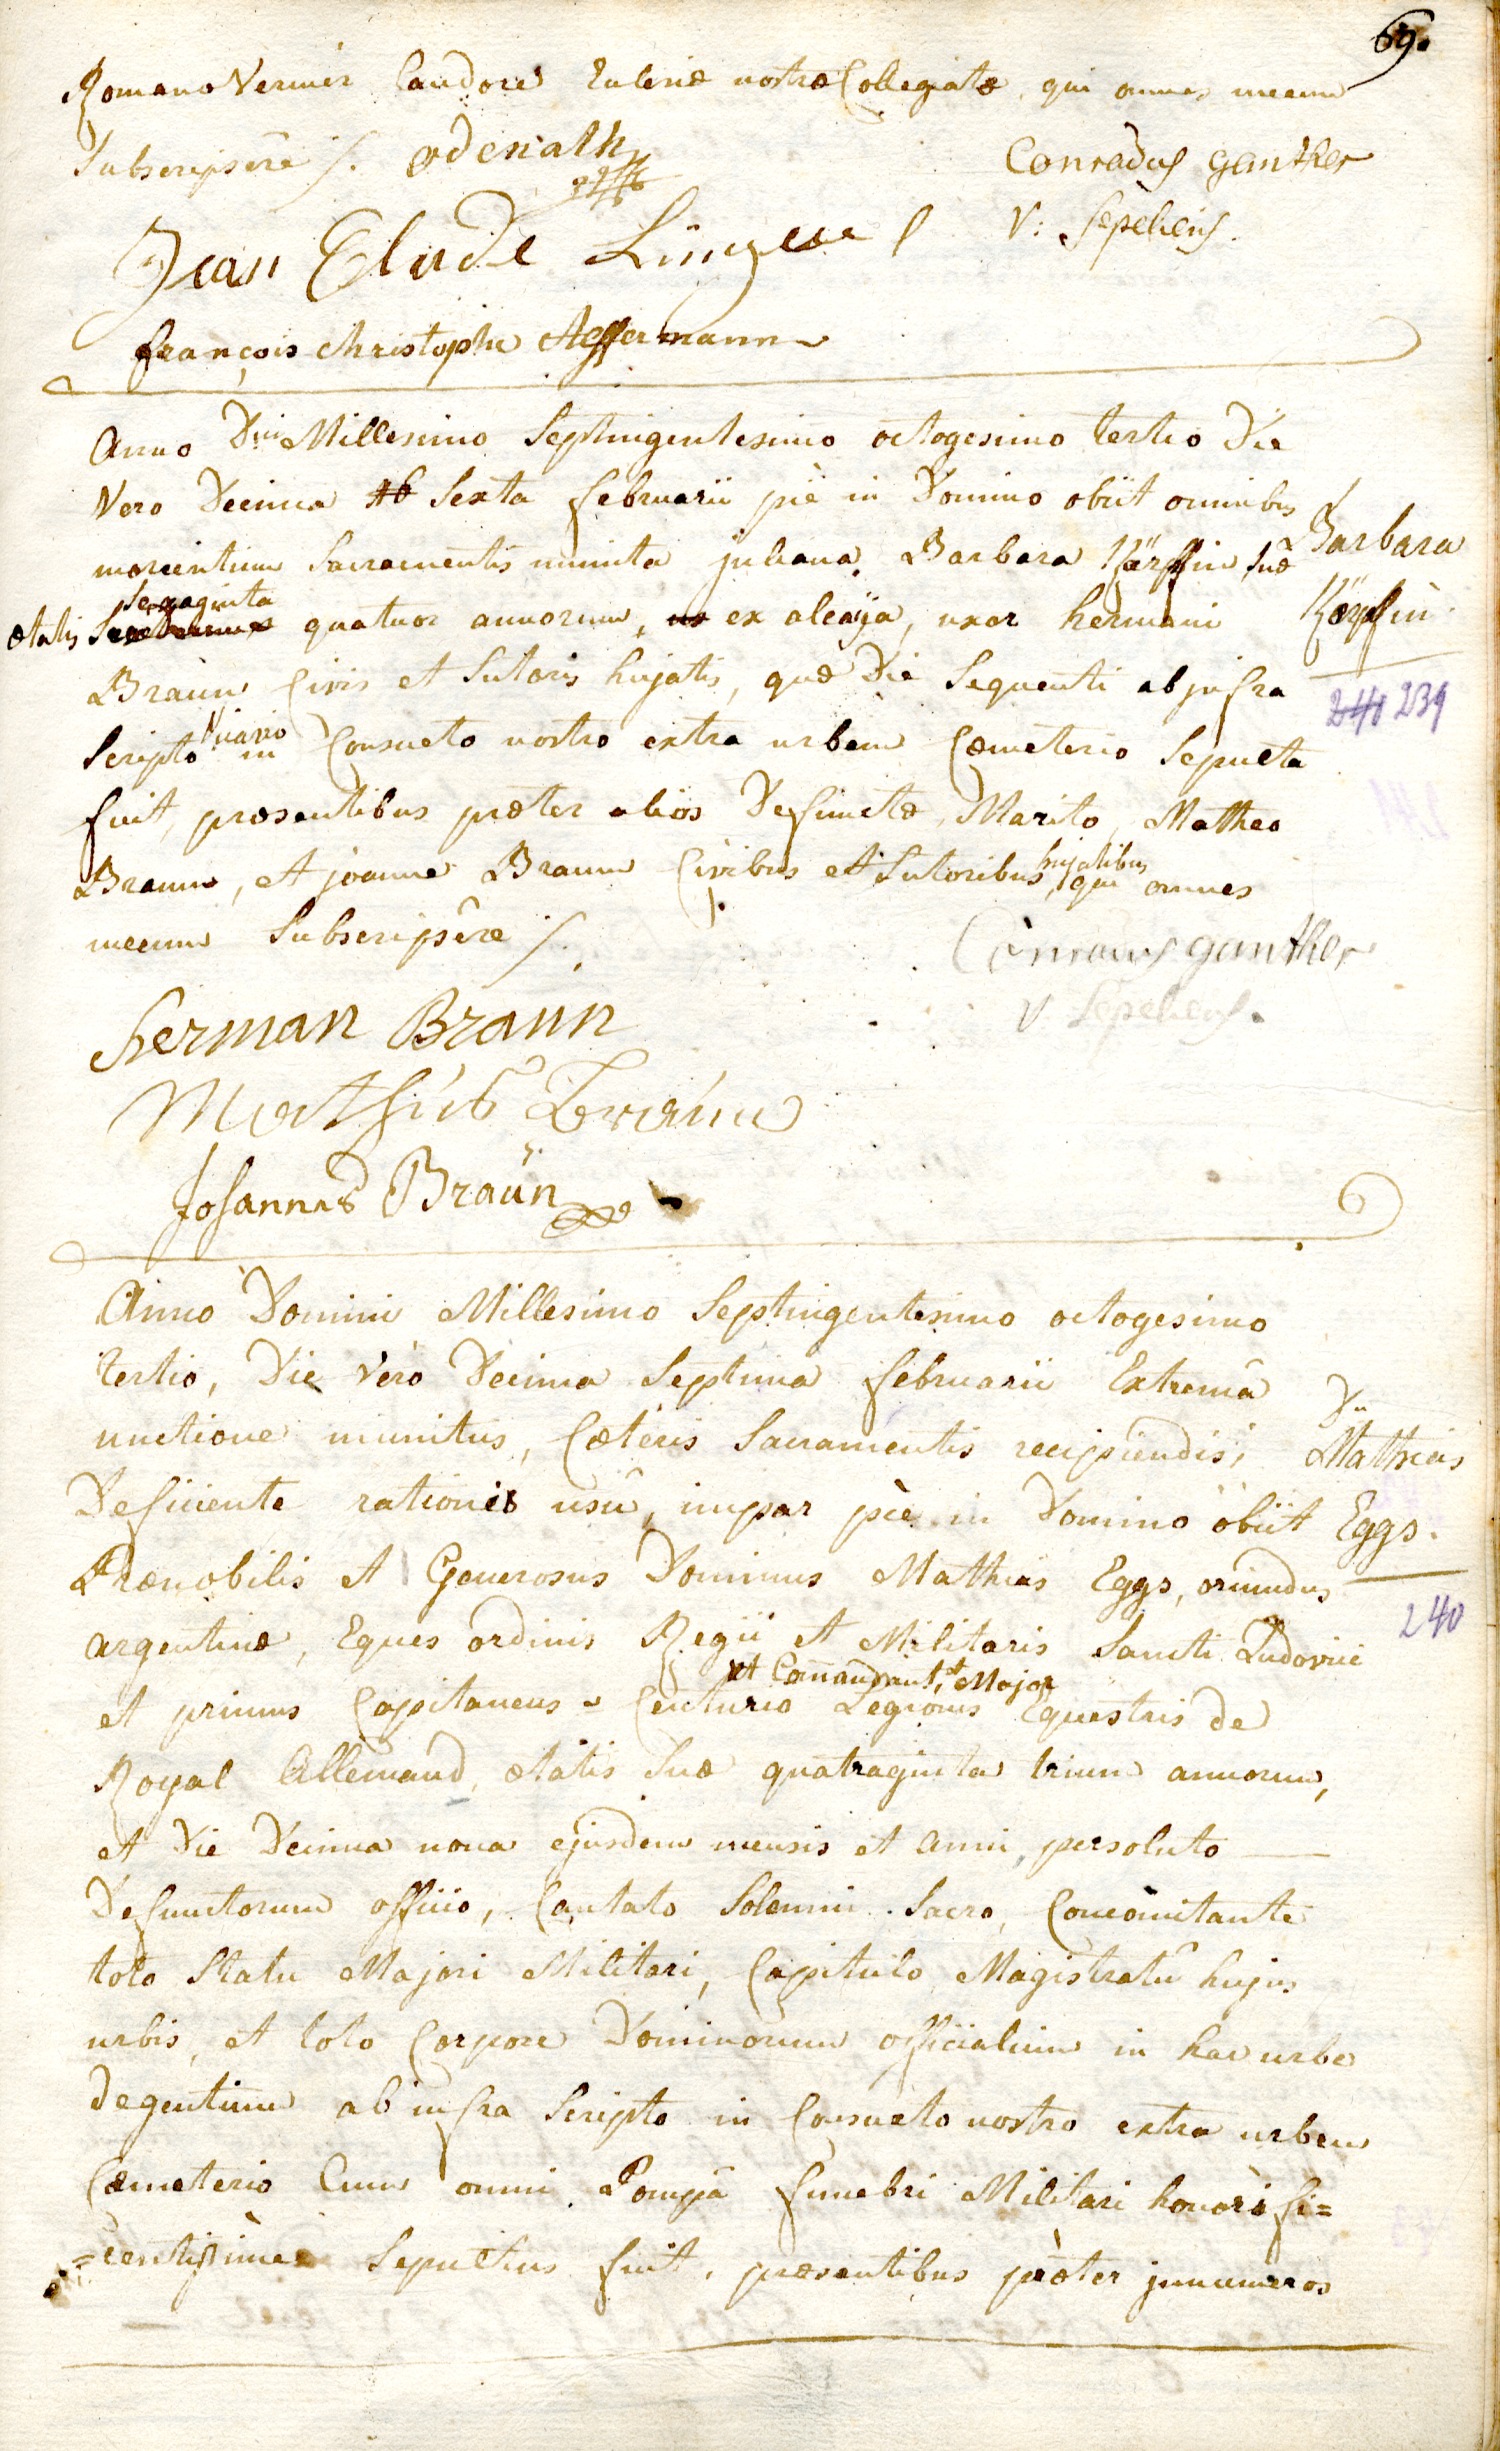 69.
Romano Vernier Candore Ecclesiæ nostræ Collegiatæ, qui omnes mecum
Subscripsêre /. Odenath
Conradus ganther
V: Sepeliens.
Jean Claude
françois christophe Affermann
Anno Dni Millesimo Septingentesimo octogesimo tertio Die
Vero Decima Sexta februarii piè in Domino obiit omnibus
morientium Sacramentis munita juliana Barbara Kärffin suæ
ætatis Sexaginta quatuor annorum, ex alcaija, uxor hermani
Braun Civis et Sutoris hujatis, quæ Die Sequenti ab infra
Scripto Vicario in Consueto nostro extra urbem Cœmeterio Sepulta
fuit, præsentibus præter alios Defunctæ Marito, Matheo
Braun, et joanne Braun Civibus et Sutoribus hujatibus, qui omnes
mecum Subscripsêre /.
Barbara
Kärffin
240 239
Conradus ganther
V Sepeliens.
Herman Braun
Mathis Braun
Johannes Braün
Anno Domini Millesimo Septingentesimo octogesimo
tertio, Die Vero Decima Septima februarii Extremâ
unctione munitus, Cæteris Sacramentis recipiendis,
Deficiente rationis usu, impar piè in Domino obiit
Prænobilis et Generosus Dominus Mathias Eggs, oriundus
argentinæ, Eques ordinis Regii et Militaris Sancti Ludovici
et primus Capitaneus - Centurio et Comandant, et Major Legionis Equestris de
Royal Allemand, ætatis Suæ quatraginta trium annorum,
et Die Decima nona ejusdem mensis et anni, persoluto
Defunctorum officio, Cantato Solemni Sacro, Concomitante
toto Statu Majori Militari, Capitulo Magistratu hujus
urbis, et toto Corpore Dominorum officialium in hac urbe
degentium ab infra Scripto in Consueto nostro extra urbem
Cœmeterio Cum omni Pompâ funebri Militari honorifi=
=centissime Sepultus fuit, præsentibus præter innumeros
Dn
Mathias
Eggs.
240